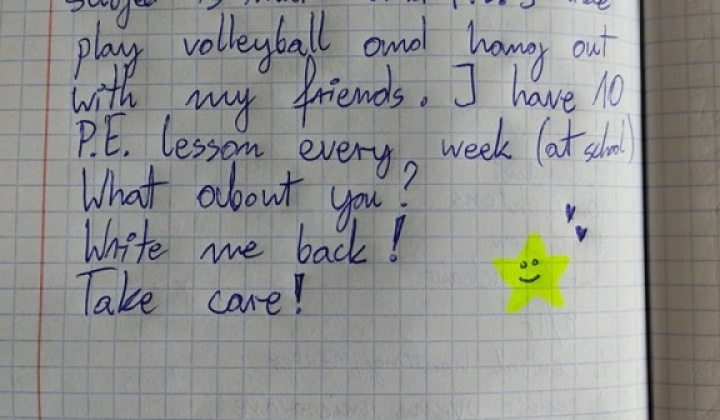 play volleyball and hang out
with my friends. I have 10
P.E. lesson every week (at school)
What about you?
Write me back!
Take care!